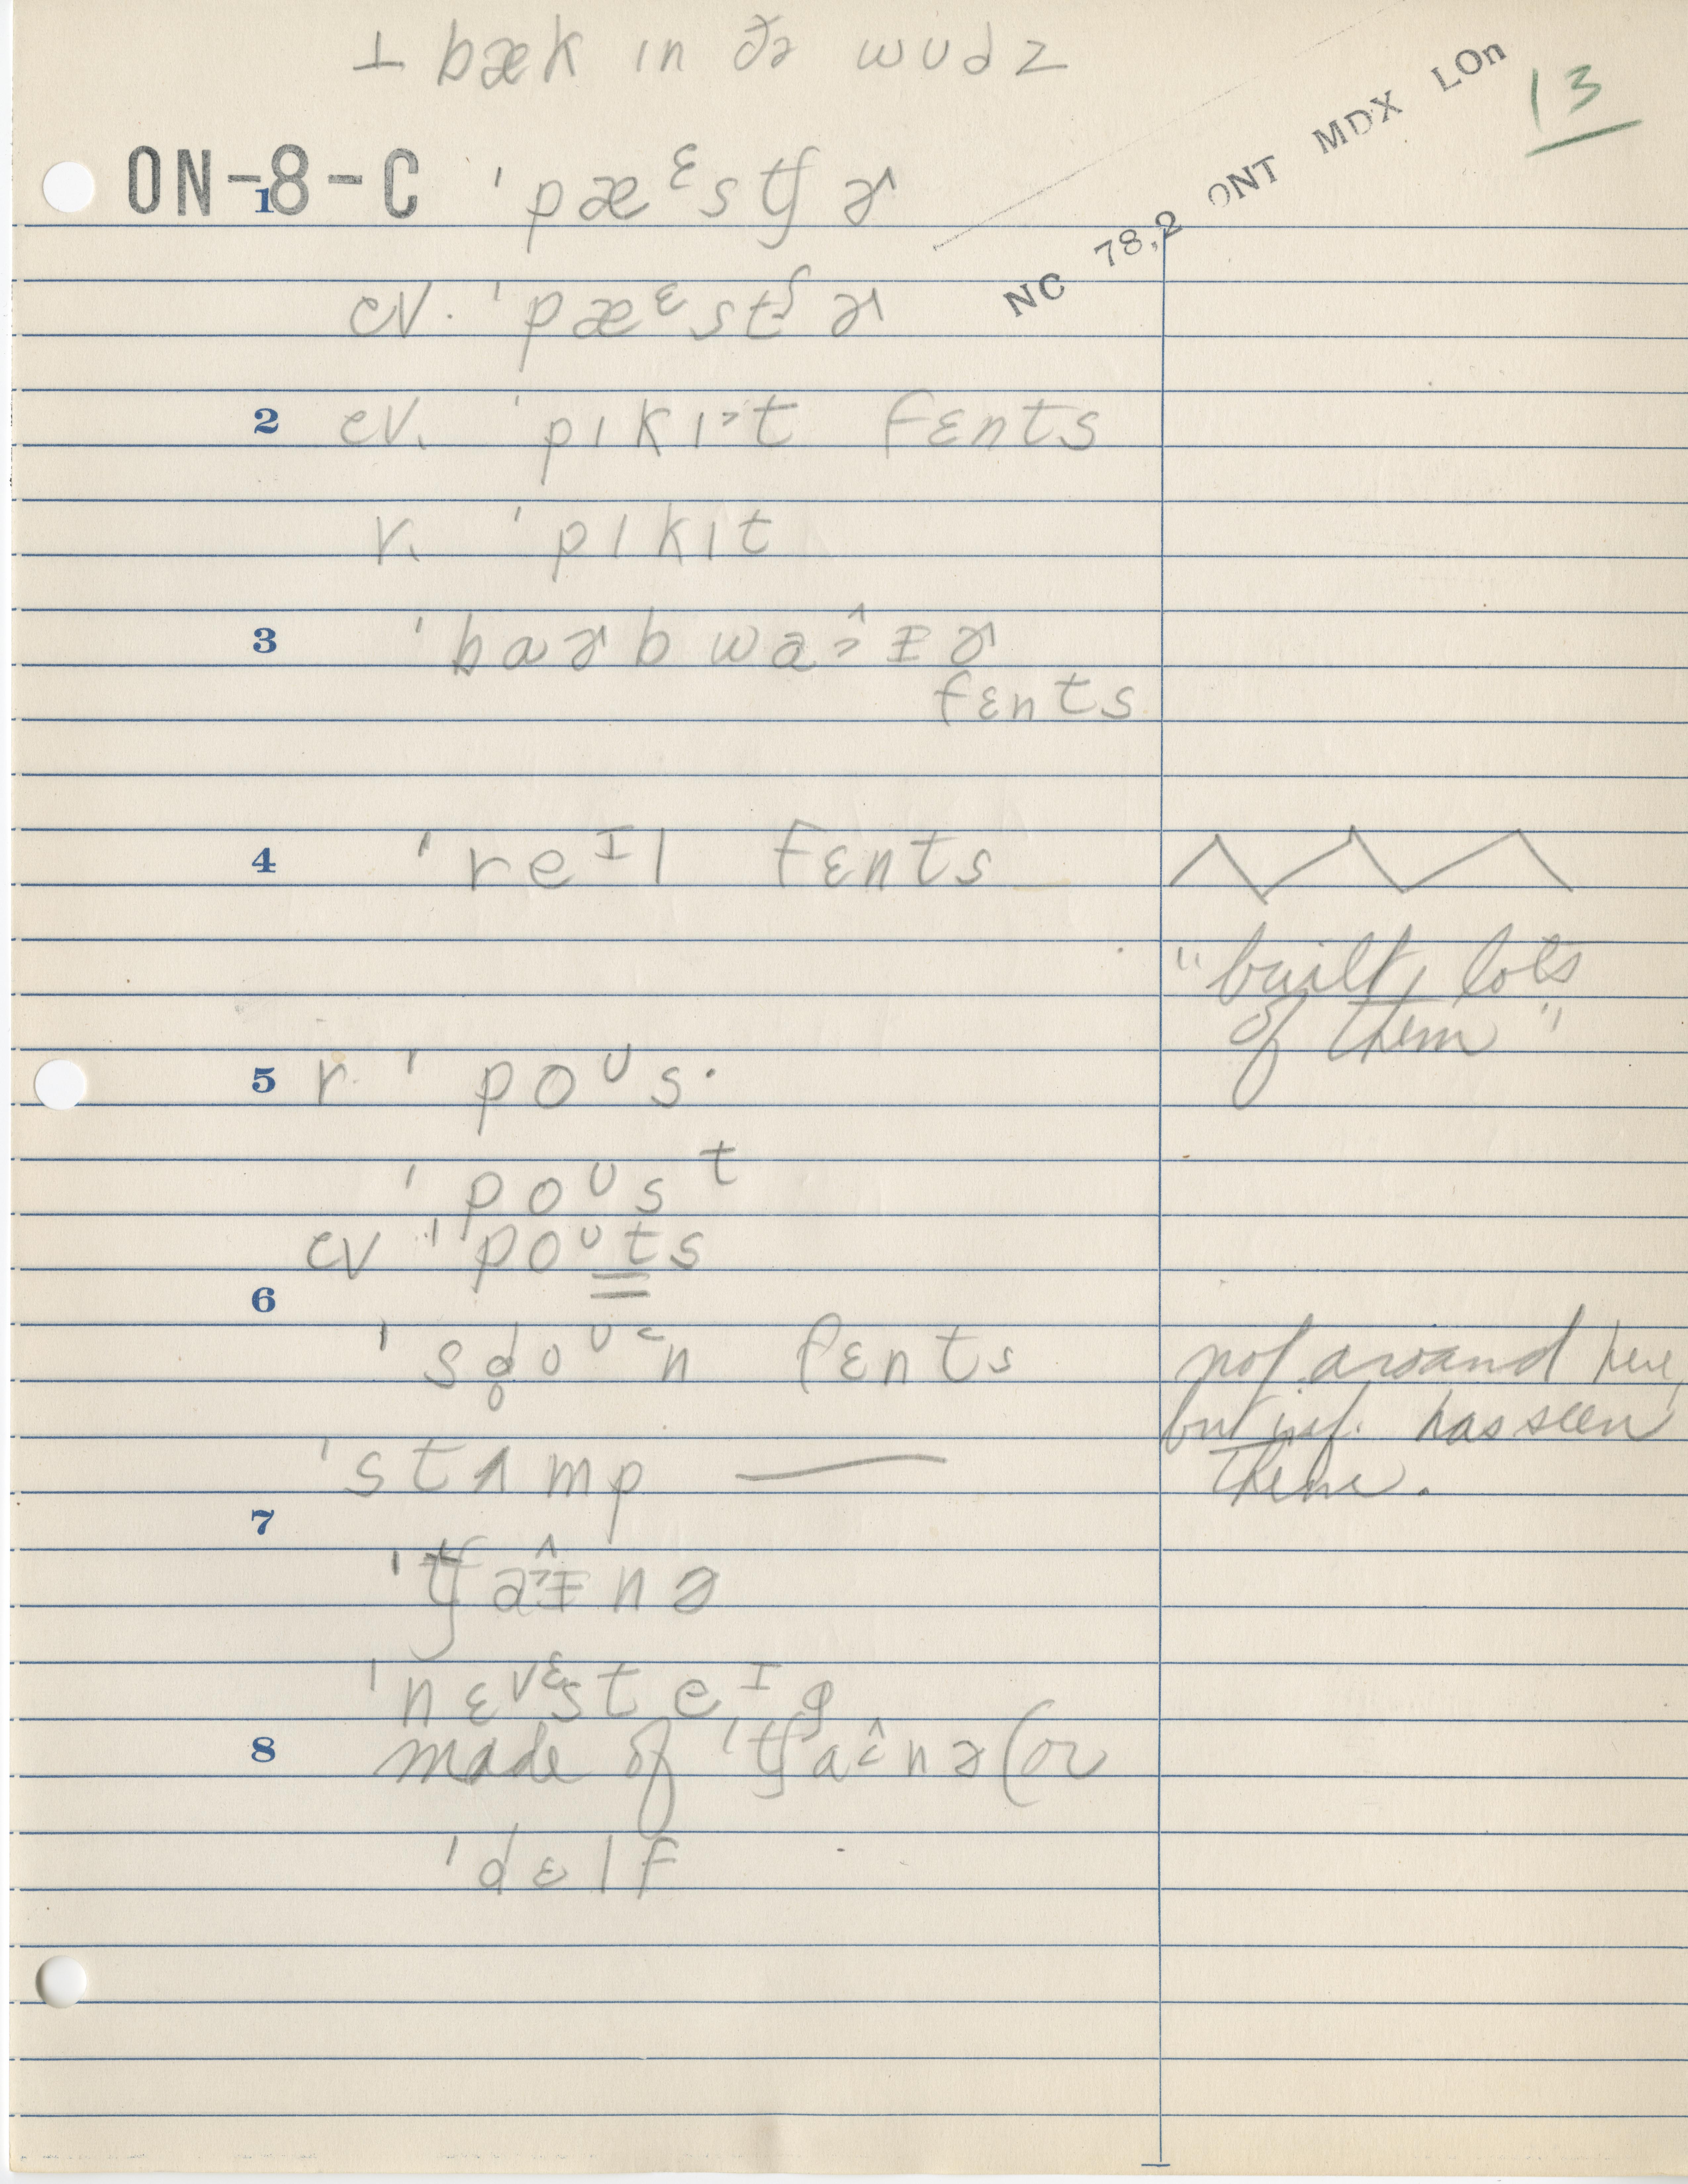 ⊥ bæk ɪn ðə wʊdz
13
NC 78,2 ONT MDX LOn
ON-8-C
1 ˈpæᵋstʃɚ
cv. ˈpæᵋstʃɚ
2 cv. ˈpɪkɪ˃t fɛnts
r. ˈpɪkɪt
3 ˈbaɚbwa˃̂ᵻɚ
fɛnts
4 ˈreᴵl fɛnts
"built lots
of them"
5 r. ˈpoᶷs·
ˈpoᶷsᵗ
cv ˈpoᶷts
6
ˈsd̥oᶷ˂n fɛnts
not around here,
but inf. has seen
them.
ˈstʌmp —
7
ˈtʃa˃̂ᵻnə
ˈnɛˇᵋsteᴵg
8 made of ˈtʃa˂̂nə (or
ˈdɛlf